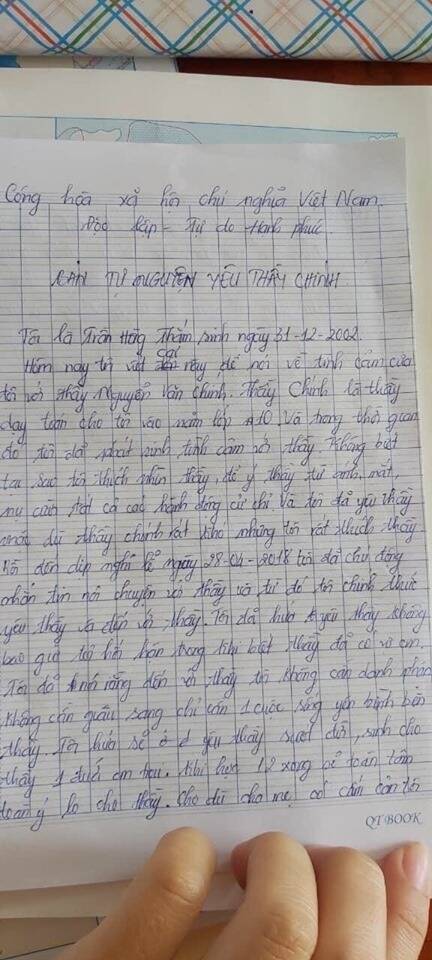 Cộng hòa xã hội chủ nghĩa Việt Nam.
Độc lập - Tự do Hạnh phúc
BẢN TỰ NGUYỆN YÊU THẦY CHÍNH
Tôi là Trần Hồng Thắm, sinh ngày 31-12-2002.
Hôm nay tôi viết cái này để nói về tình cảm của
tôi với thầy Nguyễn Văn Chính. Thầy Chính là thầy
dạy toán cho tôi vào năm lớp A10. Và trong thời gian
đó tôi đã phát sinh tình cảm với thầy. Không biết
tại sao tôi thích nhìn thầy, để ý thầy từ ánh mắt,
nụ cười tất cả các hành động cử chỉ. Và tôi đã yêu thầy
mặc dù thầy chính rất khó nhưng tôi rất thích thầy
đến dịp nghỉ lễ ngày 28-04-2018 tôi đã chủ động
nhắn tin nói chuyện với thầy và từ đó tôi chính thức
yêu thầy và đến với thầy. Tôi đã hứa yêu thầy không
bao giờ tôi hối hận trong khi biết thầy đã có vợ con.
Tôi đã nói rằng đến với thầy tôi không cần danh phận
không cần giàu sang chỉ cần 1 cuộc sống yên bình bên
thầy. Tôi hứa sẽ yêu thầy suốt đời, sinh cho
thầy 1 đứa em trai. Khi học 12 xong sẽ toàn tâm
toàn ý lo cho thầy. Cho dù cha mẹ có cấm cản tôi
QT BOOK